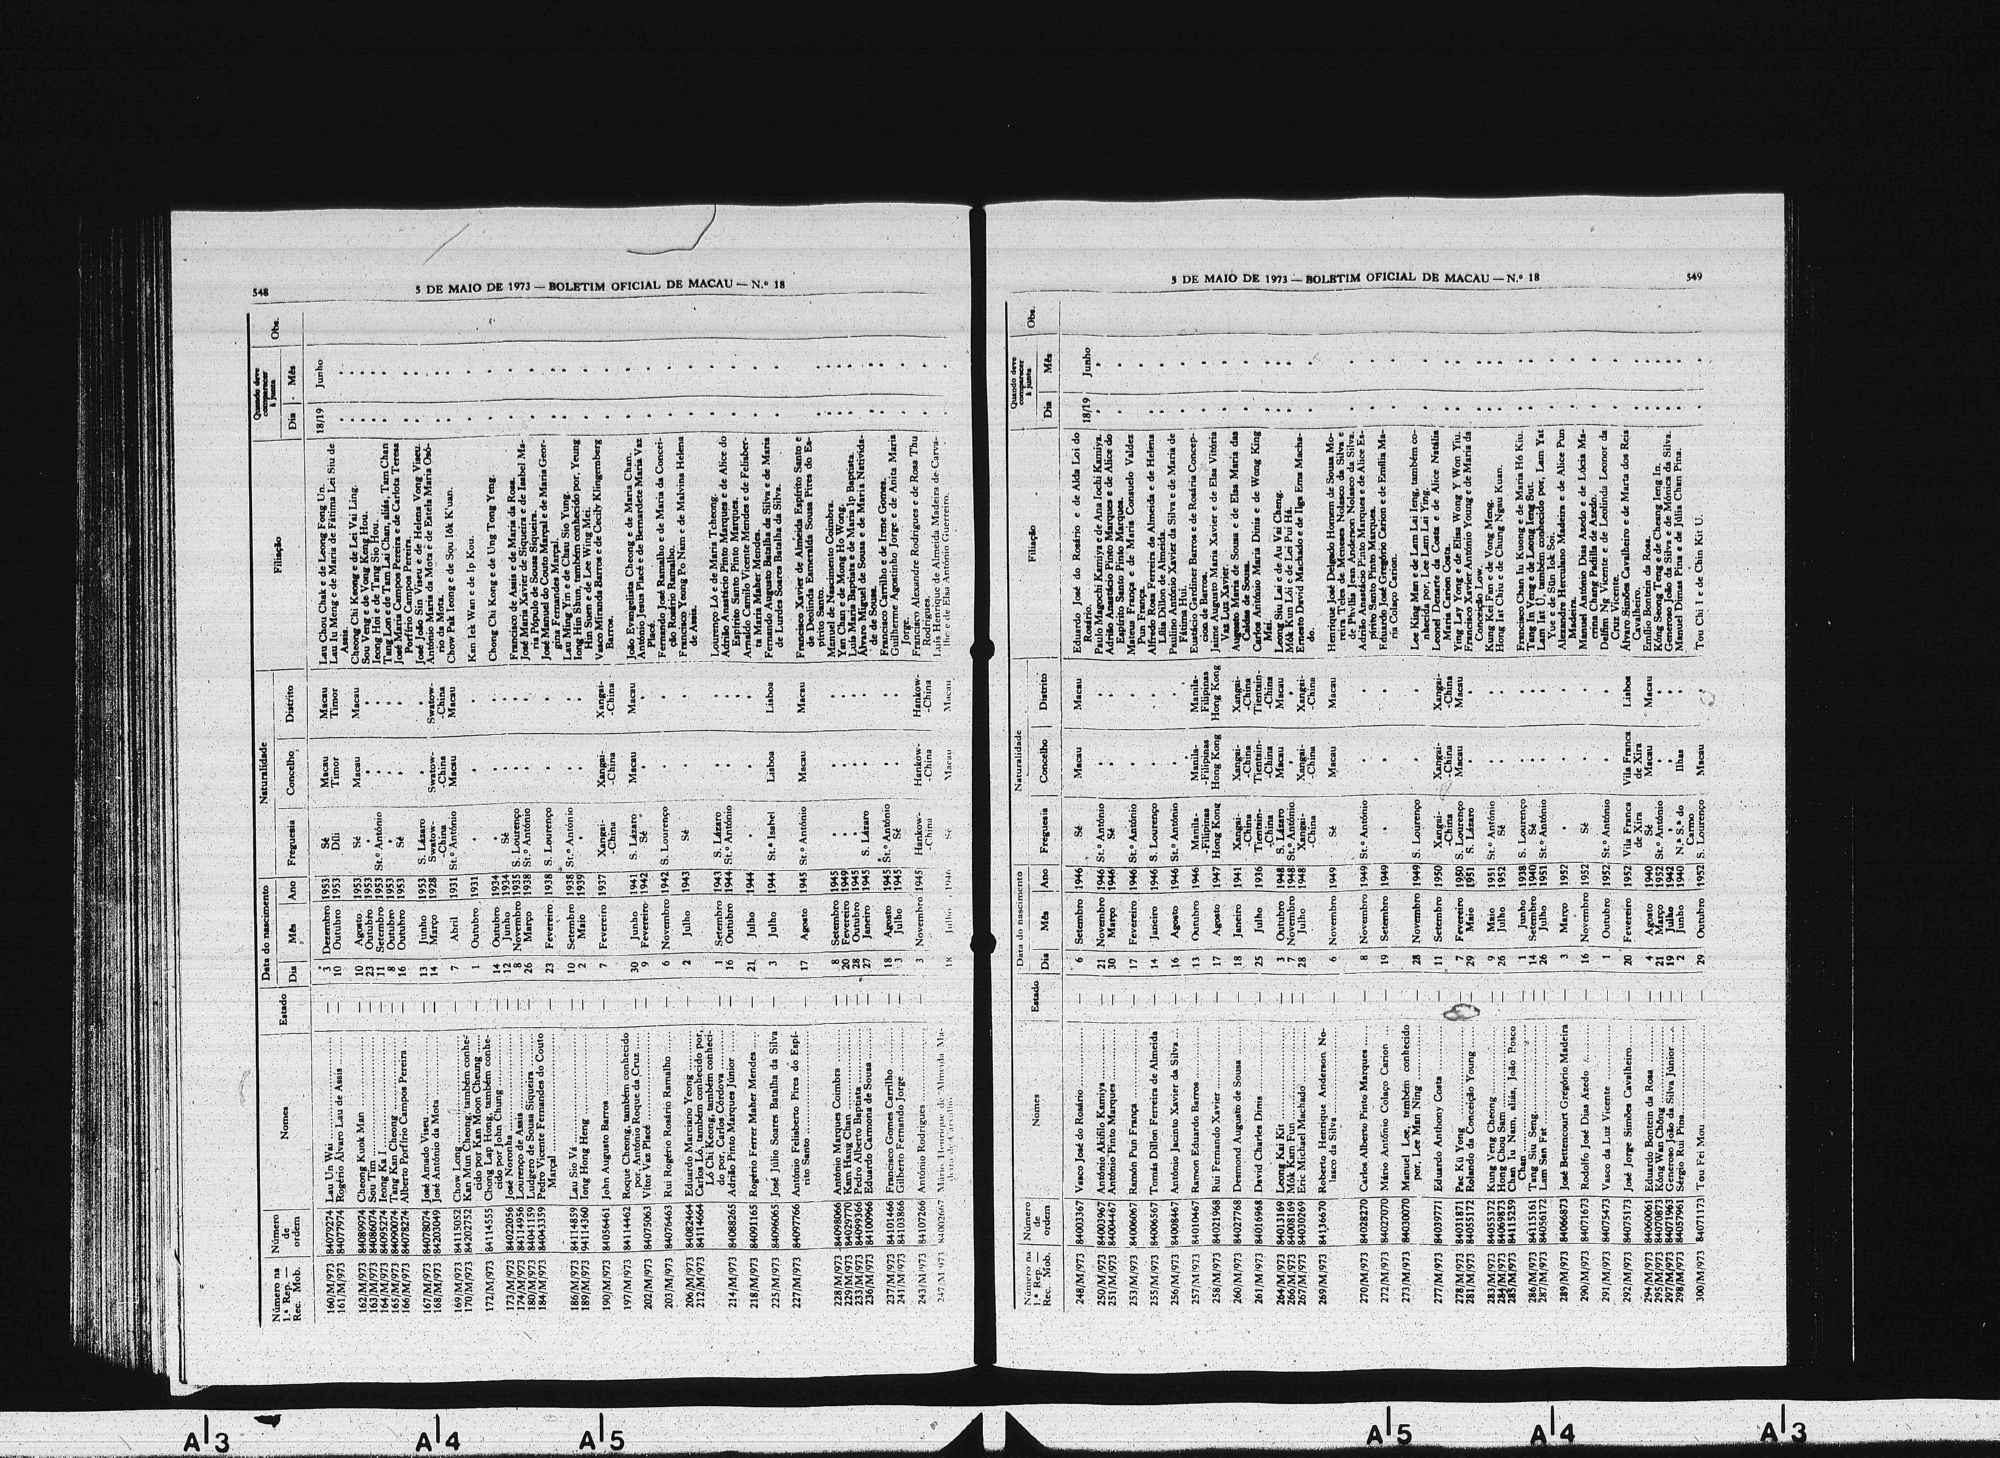 548
5 DE MAIO DE 1973 — BOLETIM OFICIAL DE MACAU — N.º 18
Número na 1.ª Rep. — Rec. Mob. Número de ordem Nomes Estado Data do nascimento Dia Mês Ano Naturalidade Freguesia Concelho Distrito Filiação Quando deve comparecer à junta Dia Mês Obs.
160/M/973 84079274 Lau Un Wai — 3 Dezembro 1953 Sé Macau Macau Lau Chou Chak e de Leong Fong Un. 18/19 Junho
161/M/973 84077974 Rogério Álvaro Lau de Assis — 10 Outubro 1953 Díli Timor Timor Lau Iu Mong e de Maria de Fátima Lei Siu de Assis.
162/M/973 84080974 Cheong Kuok Man — 10 Agosto 1953 Sé Macau Macau Cheong Chi Keong e de Lei Vai Ling.
163/M/973 84086074 Sou Tim — 23 Outubro 1953 Sou Veng e de Vong Keng Hou.
164/M/973 84095274 Ieong Ka I — 11 Setembro 1953 St.º António Ieong Hoi e de Tang Sio Hou.
165/M/973 84090074 Tang Kan Cheong — 8 Outubro 1953 Tang Lon e de Tam Lai Chan, aliás, Tam Chan
166/M/973 84078274 Alberto Porfírio Campos Pereira — 16 Outubro 1953 Sé José Maria Campos Pereira e de Carlota Teresa Porfírio Campos Pereira.
167/M/973 84078074 José Amado Viseu — 13 Junho 1953 S. Lázaro José João Sin Viseu e de Helena Vong Viseu.
168/M/973 84203049 José António da Mota — 14 Março 1928 Swatow-China Swatow-China Swatow-China António Maria da Mota e de Estela Maria Osório da Mota.
169/M/973 84115052 Chow Long — 7 Abril 1931 St.º António Macau Macau Chow Pak Ieong e de Sou Iók K'uan.
170/M/973 84202752 Kan Mun Cheong, também conhecido por Kan Moon Cheung — 1 Outubro 1931 Kan Iek Wan e de Ip Kou.
172/M/973 84114555 Chong Lap Hong, também conhecido por John Chung — 14 Outubro 1934 Chong Chi Kong e de Ung Tong Yeng.
173/M/973 84022056 José Noronha — 12 Junho 1934 Sé
174/M/973 84114956 Lourenço de Assis — 8 Novembro 1935 S. Lourenço Francisco de Assis e de Maria da Rosa.
180/M/973 84041159 Ludgero de Sousa Siqueira — 26 Março 1938 St.º António José Maria Xavier de Siqueira e de Isabel Maria Pópulo de Sousa Siqueira.
184/M/973 84043359 Pedro Vicente Fernandes do Couto Marçal — 23 Fevereiro 1938 S. Lourenço José Manuel do Couto Marçal e de Maria Georgina Fernandes Marçal.
186/M/973 84114859 Lau Sio Vá — 10 Setembro 1938 St.º António Lau Ming Yin e de Chau Sio Yung.
189/M/973 94114360 Iong Hong Heng — 2 Maio 1939 Iong Hin Shun, também conhecido por, Yeung Hin Suen e de Lee Wing Mei.
190/M/973 84056461 John Augusto Barros — 7 Fevereiro 1937 Xangai-China Xangai-China Xangai-China Vasco Miranda Barros e de Cecily Klingemberg Barros.
197/M/973 84114462 Roque Cheong, também conhecido por, António Roque da Cruz — 30 Junho 1941 S. Lázaro Macau Macau João Evangelista Cheong e de Maria Chan.
202/M/973 84075063 Vítor Vaz Placé — 9 Fevereiro 1942 Sé António Jesus Placé e de Bernardete Maria Vaz Placé.
203/M/973 84076463 Rui Rogério Rosário Ramalho — 6 Novembro 1942 S. Lourenço Fernando José Ramalho e de Maria da Conceição Rosário Ramalho.
206/M/973 84082464 Eduardo Marciano Yeong — 2 Julho 1943 Sé Francisco Yeong Po Nam e de Malvina Helena de Assis.
212/M/973 84114664 Carlos Ló, também conhecido por, Ló Chi Keong, também conhecido por, Carlos Córdova — 1 Setembro 1943 S. Lázaro Lourenço Ló e de Maria Tcheong.
214/M/973 84088265 Adrião Pinto Marques Júnior — 16 Outubro 1944 St.º António Adrião Anastácio Pinto Marques e de Alice do Espírito Santo Pinto Marques.
218/M/973 84091165 Rogério Ferrer Maher Mendes — 21 Julho 1944 Arnaldo Camilo Vicente Mendes e de Felisberta Maria Maher Mendes.
225/M/973 84096065 José Júlio Soares Batalha da Silva — 3 Julho 1944 St.ª Isabel Lisboa Lisboa Fernando Augusto Batalha da Silva e de Maria de Lurdes Soares Batalha da Silva.
227/M/973 84097766 António Felisberto Pires do Espírito Santo — 17 Agosto 1945 St.º António Macau Macau Francisco Xavier de Almeida Espírito Santo e de Deolinda Esmeralda Sousa Pires do Espírito Santo.
228/M/973 84098066 António Marques Coimbra — 8 Setembro 1945 Manuel de Nascimento Coimbra.
229/M/973 84029770 Kam Hang Chan — 20 Fevereiro 1949 Yat Chan e de Mong Hó Wong.
233/M/973 84099366 Pedro Alberto Baptista — 28 Outubro 1945 Luís Maria Baptista e de Maria Ip Baptista.
236/M/973 84100966 Eduardo Carmona de Sousa — 27 Janeiro 1945 S. Lázaro Álvaro Miguel de Sousa e de Maria Natividade de Sousa.
237/M/973 84101466 Francisco Gomes Carrilho — 18 Agosto 1945 St.º António Francisco Carrilho e de Irene Gomes.
241/M/973 84103866 Gilberto Fernando Jorge — 3 Julho 1945 Sé Guilherme Agostinho Jorge e de Anita Maria Jorge.
243/M/973 84107266 António Rodrigues — 3 Novembro 1945 Hankow-China Hankow-China Hankow-China Francisco Alexandre Rodrigues e de Rosa Thu Rodrigues.
247/M/973 84002667 Mário Henrique de Almeida Madeira de Carvalho 18 Julho 1946 Sé Macau Macau Luís Henrique de Almeida Madeira de Carvalho e de Elsa António Guerreiro.
5 DE MAIO DE 1973 — BOLETIM OFICIAL DE MACAU — N.º 18
549
Número na 1.ª Rep. — Rec. Mob. Número de ordem Nomes Estado Data do nascimento Dia Mês Ano Naturalidade Freguesia Concelho Distrito Filiação Quando deve comparecer à junta Dia Mês Obs.
248/M/973 84003367 Vasco José do Rosário — 6 Setembro 1946 Sé Macau Macau Eduardo José do Rosário e de Alda Loi do Rosário. 18/19 Junho
250/M/973 84003967 António Akifilo Kamiya — 21 Novembro 1946 St.º António Paulo Magochi Kamiya e de Ana Iochi Kamiya.
251/M/973 84004467 António Pinto Marques — 30 Março 1946 Sé Adrião Anastácio Pinto Marques e de Alice do Espírito Santo Pinto Marques.
253/M/973 84006067 Ramón Pun França — 17 Fevereiro 1946 St.º António Mateus França e de Maria Consuelo Valdez Pun França.
255/M/973 84006567 Tomás Dillon Ferreira de Almeida — 14 Janeiro 1946 S. Lourenço Alfredo Rosa Ferreira de Almeida e de Helena Lília Dillon de Almeida.
256/M/973 84008467 António Jacinto Xavier da Silva — 16 Agosto 1946 St.º António Paulino António Xavier da Silva e de Maria de Fátima Hui.
257/M/973 84010467 Ramon Eduardo Barros — 13 Outubro 1946 Manila-Filipinas Manila-Filipinas Manila-Filipinas Eustácio Gardiner Barros e de Rosária Concepcion de Barros.
258/M/973 84021968 Rui Fernando Xavier — 17 Agosto 1947 Hong Kong Hong Kong Hong Kong Jaime Augusto Maria Xavier e de Elsa Vitória Vaz Luz Xavier.
260/M/973 84027768 Desmond Augusto de Sousa — 18 Janeiro 1941 Xangai-China Xangai-China Xangai-China Augusto Maria de Sousa e de Elsa Maria das Caldas de Sousa.
261/M/973 84016968 David Charles Dinis — 25 Julho 1936 Tientain-China Tientain-China Tientain-China Carlos António Maria Dinis e de Wong King Mai.
264/M/973 84013169 Leong Kai Kit — 3 Outubro 1948 S. Lázaro Macau Macau Leong Siu Lai e de Au Vai Cheng.
266/M/973 84008169 Mók Kam Fun — 7 Novembro 1948 St.º António Mók Kuan Lói e de Lei Pui Há.
267/M/973 84030269 Eric Michael Machado — 28 Julho 1948 Xangai-China Xangai-China Xangai-China Ernesto David Machado e de Ilga Ema Machado.
269/M/973 84136670 Roberto Henrique Anderson Nolasco da Silva — 6 Novembro 1949 Sé Macau Macau Henrique José Delgado Homem de Sousa Moreira Teles de Meneses Nolasco da Silva e de Phyllis Jean Anderson Nolasco da Silva.
270/M/973 84028270 Carlos Alberto Pinto Marques — 8 Novembro 1949 St.º António Adrião Anastácio Pinto Marques e de Alice Espírito Santo Pinto Marques.
272/M/973 84027070 Mário António Colaço Carion — 19 Setembro 1949 Eduardo José Gregório Carion e de Emília Maria Colaço Carion.
273/M/973 84030070 Manuel Lee, também conhecido por, Lee Man Ning — 28 Novembro 1949 S. Lourenço Lee King Man e de Lam Lai Ieng, também conhecida por, Lee Lam Lai Ying.
277/M/973 84039771 Eduardo Anthony Costa — 11 Setembro 1950 Xangai-China Xangai-China Xangai-China Leonel Denarte da Costa e de Alice Natália Maria Carion Costa.
278/M/973 84031871 Pac Kü Yong — 7 Fevereiro 1950 S. Lourenço Macau Macau Ying Kay Yong e de Elisa Wong Y Won Yiu.
281/M/973 84055172 Rolando da Conceição Young — 29 Maio 1951 S. Lázaro Francisco Xavier António Young e de Maria da Conceição Low.
283/M/973 84055372 Kung Veng Cheong — 9 Maio 1951 St.º António Kung Kei Fan e de Vong Meng.
284/M/973 84069873 Hong Chou Sam — 26 Julho 1952 Sé Hong Iat Chiu e de Chung Ngau Kuan.
285/M/973 84115259 Chan Iu Nam, aliás, João Bosco Chan — 1 Junho 1938 S. Lourenço Francisco Chan Iu Kuong e de Maria Hó Kiu.
286/M/973 84115161 Tang Siu Seng — 14 Setembro 1940 Sé Tang In Veng e de Leong Ieng Sut.
287/M/973 84056172 Lam San Fat — 26 Julho 1951 St.º António Lam Iat U, também conhecido por, Lam Yat Yue e de Sün Iok Soi.
289/M/973 84066873 José Bettencourt Gregório Madeira — 3 Março 1952 Alexandre Herculano Madeira e de Alice Pun Madeira.
290/M/973 84071673 Rodolfo José Dias Azedo — 16 Novembro 1952 Sé Manuel António Dias Azedo e de Lúcia Macrina Chang Padilla de Azedo.
291/M/973 84075473 Vasco da Luz Vicente — 1 Outubro 1952 St.º António Delfim Ng Vicente e de Leolinda Leonor da Cruz Vicente.
292/M/973 84075173 José Jorge Simões Cavalheiro — 20 Fevereiro 1952 Vila Franca de Xira Vila Franca de Xira Lisboa Álvaro Simões Cavalheiro e de Marta dos Reis Cavalheiro.
294/M/973 84060061 Eduardo Bontein da Rosa — 4 Agosto 1940 Sé Macau Macau Emílio Bontein da Rosa.
295/M/973 84070873 Kóng Wan Chông — 21 Março 1952 St.º António Kóng Seong Teng e de Cheang Ieng In.
297/M/973 84071963 Generoso João da Silva Júnior — 19 Julho 1942 Generoso João da Silva e de Mónica da Silva.
298/M/973 84057961 Sérgio Rui Pina — 2 Junho 1940 N.ª S.ª do Carmo Ilhas Manuel Dimas Pina e de Júlia Chan Pina.
300/M/973 84071173 Tou Fei Mou — 29 Outubro 1952 S. Lourenço Macau Tou Chi I e de Chin Kit U.
A 3
A 4
A 5
A 5
A 4
A 3